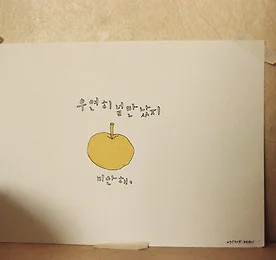 우연히 널 만났지
미안해.